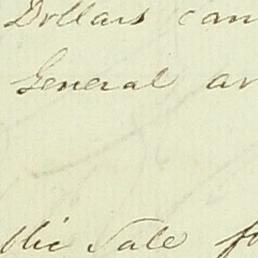 Dollars can
General an
blic Sale fo